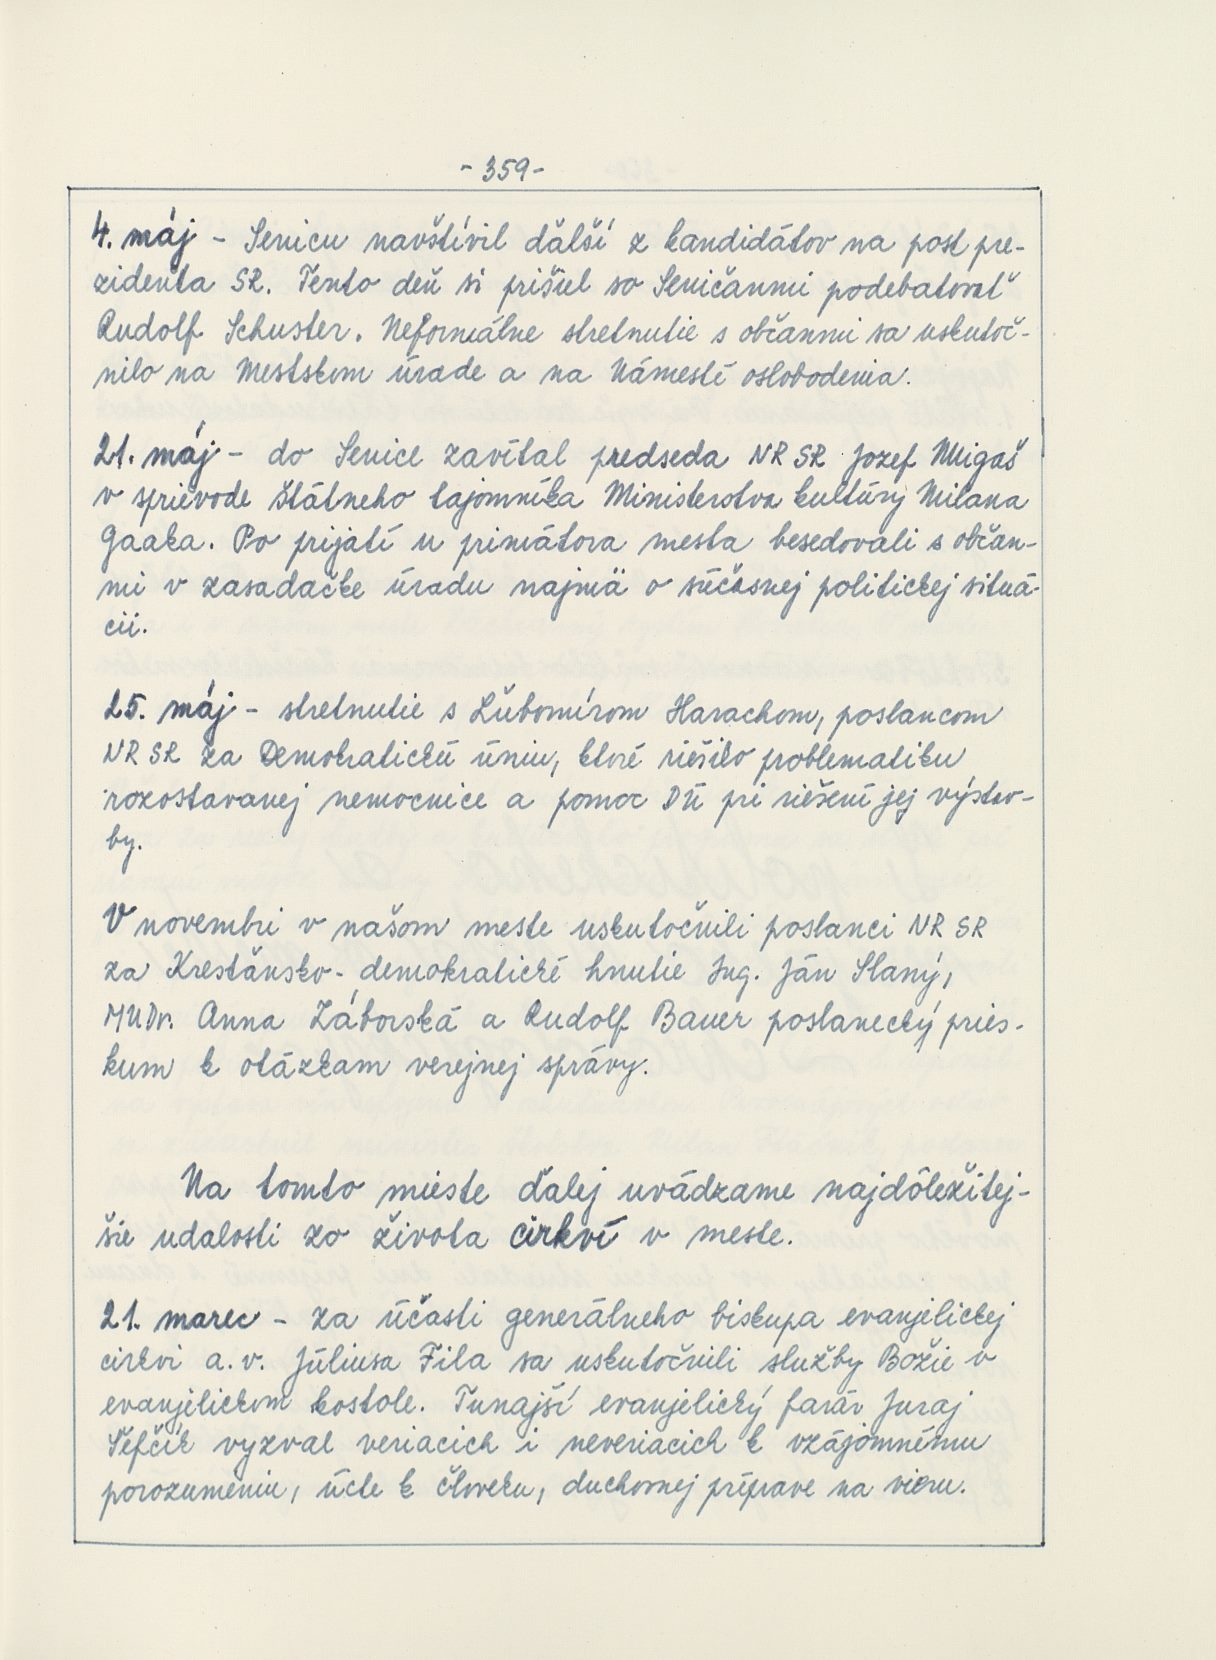 - 359 -
4. máj - Senicu navštívil ďalší z kandidátov na post pre-
zidenta SR. Tento deň si prišiel so Seničanmi podebatovať
Rudolf Schuster. Neformálne stretnutie s občanmi sa uskutoč-
nilo na Mestskom úrade a na Námestí oslobodenia.
21. máj - do Senice zavítal predseda NR SR Jozef Migaš
v sprievode štátneho tajomníka Ministerstva kultúry Milana
Gaaka. Po prijatí u primátora mesta besedovali s občan-
mi v zasadačke úradu najmä o súčasnej politickej situá-
cii.
25. máj - stretnutie s Ľubomírom Harachom, poslancom
NR SR za Demokratickú úniu, ktoré riešilo problematiku
rozostavanej nemocnice a pomoc DÚ pri riešení jej výstav-
by.
V novembri v našom meste uskutočnili poslanci NR SR
za Kresťansko-demokratické hnutie Ing. Ján Slaný,
MUDr. Anna Záborská a Rudolf Bauer poslanecký pries-
kum k otázkam verejnej správy.
Na tomto mieste ďalej uvádzame najdôležitej-
šie udalosti zo života cirkví v meste.
21. marec - za účasti generálneho biskupa evanjelickej
cirkvi a.v. Júliusa Fila sa uskutočnili služby Božie v
evanjelickom kostole. Tunajší evanjelický farár Juraj
Šefčík vyzval veriacich i neveriacich k vzájomnému
porozumeniu, úcte k človeku, duchovnej príprave na vieru.